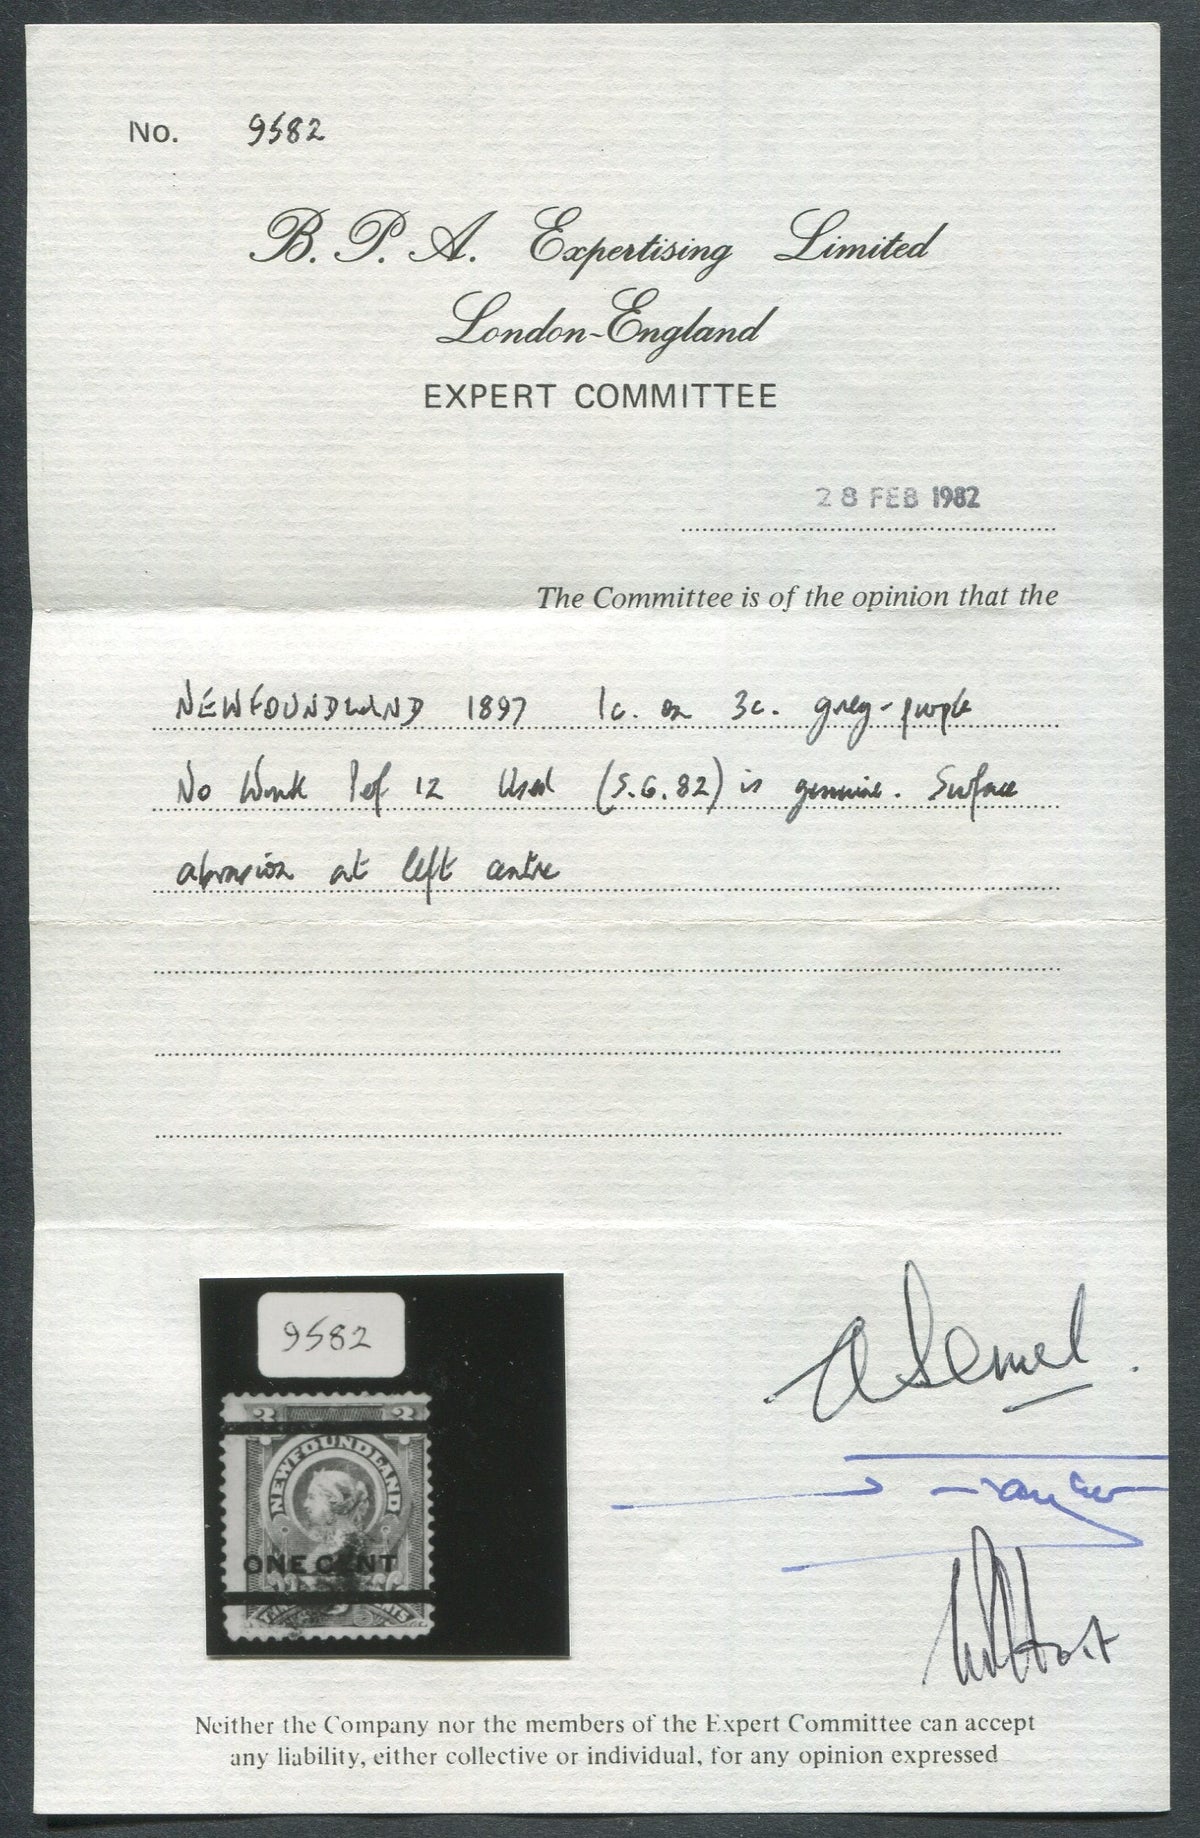 No. 9582
B. P. A. Expertising Limited
London-England
EXPERT COMMITTEE
28 FEB 1982
The Committee is of the opinion that the
NEWFOUNDLAND 1897 1c. on 3c. grey-purple
No Wmk Perf 12 Used (S.G. 82) is genuine. Surface
abrasion at left centre
9582
3 3
NEWFOUNDLAND
ONE CENT
Neither the Company nor the members of the Expert Committee can accept
any liability, either collective or individual, for any opinion expressed